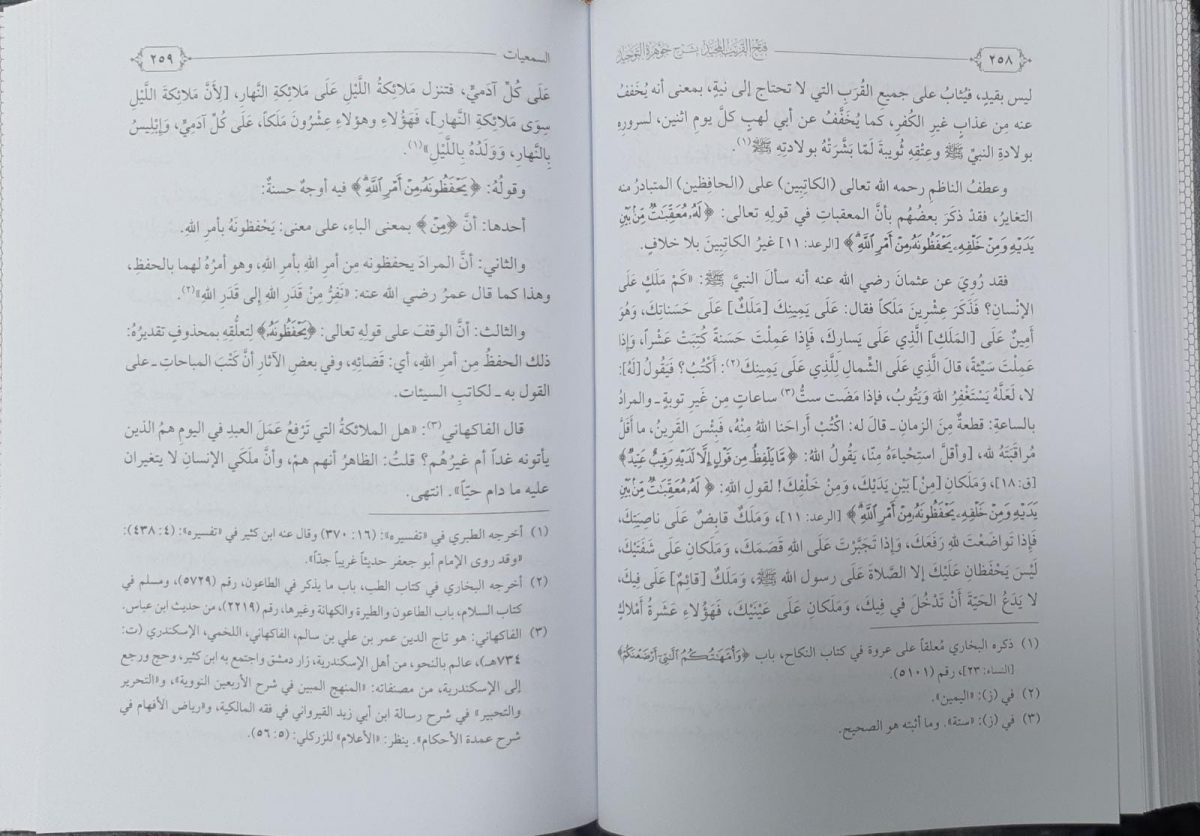 ٢٥٨
فتح القريب المجيد بشرح جوهرة التوحيد
ليس بقيدٍ، فيُثابُ على جميع القُرَبِ التي لا تحتاج إلى نيةٍ، بمعنى أنه يُخَفَّفُ
عنه مِن عذابِ غيرِ الكُفرِ، كما يُخَفَّفُ عن أبي لهبٍ كلَّ يومِ اثنين، لسرورِهِ
بولادةِ النبيِّ ﷺ وعِتْقِهِ ثُويبةَ لَمّا بَشَّرَتْهُ بولادتِهِ ﷺ(١).
وعطفُ الناظمِ رحمه الله تعالى (الكاتِبين) على (الحافظين) المتبادرُ منه
التغايرُ، فقدْ ذكرَ بعضُهُم بأنَّ المعقباتِ في قولِهِ تعالى: ﴿لَهُۥ مُعَقِّبَٰتٌ مِّنۢ بَيْنِ
يَدَيْهِ وَمِنْ خَلْفِهِۦ يَحْفَظُونَهُۥ مِنْ أَمْرِ ٱللَّهِ﴾ [الرعد: ١١] غيرُ الكاتِبينَ بلا خلافٍ.
فقد رُويَ عن عثمانَ رضي الله عنه أنه سألَ النبيَّ ﷺ: «كَمْ مَلَكٍ عَلَى
الإنْسانِ؟ فَذَكَرَ عِشْرينَ مَلَكاً فقال: عَلَى يَمِينِكَ [مَلَكٌ] عَلَى حَسَناتِكَ، وَهُوَ
أَمِينٌ عَلَى [المَلَكِ] الَّذِي عَلَى يَسارِكَ، فَإذا عَمِلْتَ حَسَنَةً كُتِبَتْ عَشْراً، وَإذا
عَمِلْتَ سَيِّئَةً، قالَ الَّذِي عَلَى الشِّمالِ لِلَّذِي عَلَى يَمِينِكَ(٢): أَكْتُبُ؟ فَيَقُولُ [لَهُ]:
لا، لَعَلَّهُ يَسْتَغْفِرُ اللهَ وَيَتُوبُ، فإذا مَضَت ستُّ(٣) ساعاتٍ مِن غَيرِ توبةٍ ـ والمرادُ
بالساعةِ: قطعةٌ مِنَ الزمانِ ـ قالَ له: اكْتُبْ أراحَنا اللهُ مِنْهُ، فَبِئْسَ القَرينُ، ما أَقَلَّ
مُراقَبَتَهُ لله، [وأقلَّ استِحْياءَهُ مِنّا، يَقُولُ اللهُ: ﴿مَّا يَلْفِظُ مِن قَوْلٍ إِلَّا لَدَيْهِ رَقِيبٌ عَتِيدٌ﴾
[ق: ١٨]، وَمَلَكانِ [مِنْ] بَيْنِ يَدَيْكَ، وَمِنْ خَلْفِكَ! لقولِ اللهِ: ﴿لَهُۥ مُعَقِّبَٰتٌ مِّنۢ بَيْنِ
يَدَيْهِ وَمِنْ خَلْفِهِۦ يَحْفَظُونَهُۥ مِنْ أَمْرِ ٱللَّهِ﴾ [الرعد: ١١]، وَمَلَكٌ قابِضٌ عَلَى ناصِيَتِكَ،
فَإذا تَواضَعْتَ لِلهِ رَفَعَكَ، وَإذا تَجَبَّرْتَ عَلَى اللهِ قَصَمَكَ، وَمَلَكانِ عَلَى شَفَتَيْكَ،
لَيْسَ يَحْفَظانِ عَلَيْكَ إلا الصَّلاةَ عَلَى رسول الله ﷺ، وَمَلَكٌ [قائِمٌ] عَلَى فِيكَ،
لا يَدَعُ الحَيَّةَ أَنْ تَدْخُلَ في فِيكَ، وَمَلَكانِ عَلَى عَيْنَيْكَ، فَهَؤُلاءِ عَشَرَةُ أَمْلاكٍ
(١) ذكره البخاري مُعلقاً على عروة في كتاب النكاح، باب ﴿وَأُمَّهَٰتُكُمُ ٱلَّٰتِىٓ أَرْضَعْنَكُمْ﴾
[النساء: ٢٣]، رقم (٥١٠١).
(٢) في (ز): «اليمين».
(٣) في (ز): «ستة». وما أثبته هو الصحيح.
السمعيات
٢٥٩
عَلَى كُلِّ آدَميٍّ، فتنزل مَلائكةُ اللَّيْلِ عَلَى مَلائِكةِ النَّهارِ، [لِأنَّ مَلائكةَ اللَّيْلِ
سِوَى مَلائكةِ النَّهارِ]، فَهَؤُلاءِ وهؤلاءِ عِشْرُونَ مَلَكاً، عَلَى كُلِّ آدَميٍّ، وَإبْلِيسُ
بِالنَّهارِ، وَوَلَدُهُ بِاللَّيْلِ»(١).
وقولُهُ: ﴿يَحْفَظُونَهُۥ مِنْ أَمْرِ ٱللَّهِ﴾ فيه أوجهٌ حسنةٌ:
أحدها: أنَّ ﴿مِنْ﴾ بمعنى الباءِ، على معنى: يَحْفظونَهُ بأمرِ اللهِ.
والثاني: أنَّ المرادَ يحفظونه مِن أمرِ اللهِ بأمرِ اللهِ، وهو أمرُهُ لهما بالحفظِ،
وهذا كما قال عمرُ رضي الله عنه: «نَفَرُّ مِنْ قَدَرِ اللهِ إلى قَدَرِ اللهِ»(٢).
والثالث: أنَّ الوقفَ على قولِهِ تعالى: ﴿يَحْفَظُونَهُۥ﴾ لتعلُّقِهِ بمحذوفٍ تقديرُهُ:
ذلك الحفظُ مِن أمرِ اللهِ، أي: قضائِهِ، وفي بعض الآثارِ أنَّ كَتْبَ المباحاتِ ـ على
القول به ـ لكاتبِ السيئات.
قال الفاكهاني(٣): «هل الملائكةُ التي تَرْفعُ عَمَلَ العبدِ في اليومِ همُ الذين
يأتونه غداً أم غيرُهُم؟ قلتُ: الظاهرُ أنهم همْ، وأنَّ ملَكَي الإنسانِ لا يتغيرانِ
عليه ما دام حيّاً». انتهى.
(١) أخرجه الطبري في «تفسيره»: (١٦: ٣٧٠) وقال عنه ابن كثير في «تفسيره»: (٤: ٤٣٨):
«وقد روى الإمام أبو جعفر حديثاً غريباً جدّاً».
(٢) أخرجه البخاري في كتاب الطب، باب ما يذكر في الطاعون، رقم (٥٧٢٩)، ومسلم في
كتاب السلام، باب الطاعون والطيرة والكهانة وغيرها، رقم (٢٢١٩)، من حديث ابن عباس.
(٣) الفاكهاني: هو تاج الدين عمر بن علي بن سالم، الفاكهاني، اللخمي، الإسكندري (ت:
٧٣٤هـ)، عالم بالنحو، من أهل الإسكندرية، زار دمشق واجتمع به ابن كثير، وحج ورجع
إلى الإسكندرية، من مصنفاته: «المنهج المبين في شرح الأربعين النووية»، و«التحرير
والتحبير» في شرح رسالة ابن أبي زيد القيرواني في فقه المالكية، و«رياض الأفهام في
شرح عمدة الأحكام». ينظر: «الأعلام» للزركلي: (٥: ٥٦).